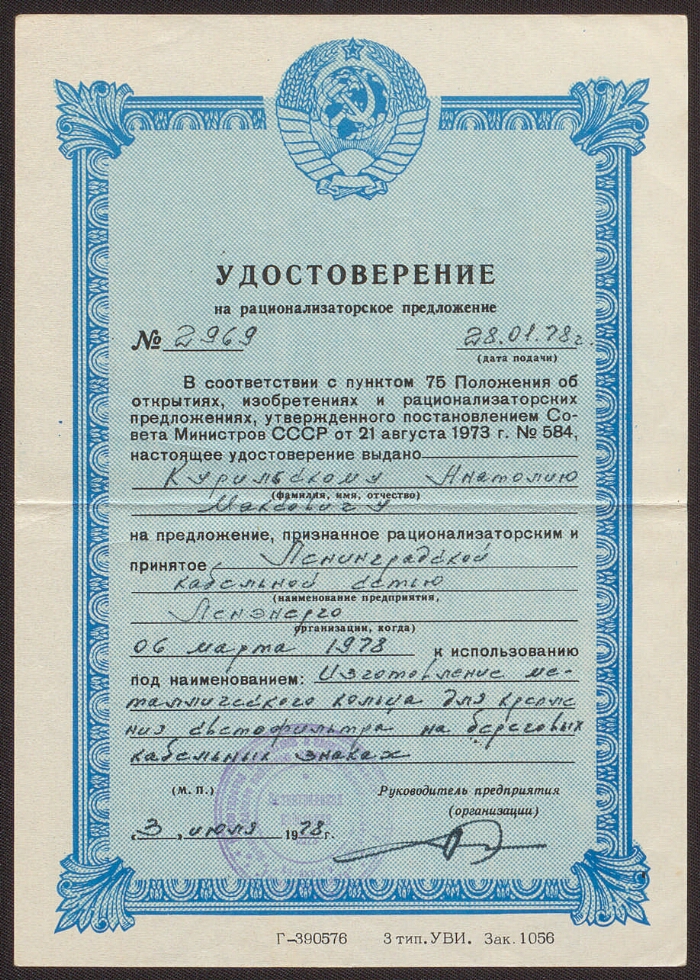 УДОСТОВЕРЕНИЕ
на рационализаторское предложение
№ 2969 28.01.78 г.
(дата подачи)
В соответствии с пунктом 75 Положения об
открытиях, изобретениях и рационализаторских
предложениях, утвержденного постановлением Со-
вета Министров СССР от 21 августа 1973 г. № 584,
настоящее удостоверение выдано
Курильскому Анатолию
(фамилия, имя, отчество)
Максовичу
на предложение, признанное рационализаторским и
принятое Ленинградской
кабельной сетью
(наименование предприятия,
Ленэнерго
организации, когда)
06 марта 1978 к использованию
под наименованием: Изготовление ме-
таллического кольца для крепле
ния светофильтра на береговых
кабельных знаках
(М. П.) Руководитель предприятия
(организации)
„3„ июля 1978 г.
Г-390576 3 тип. УВИ. Зак. 1056